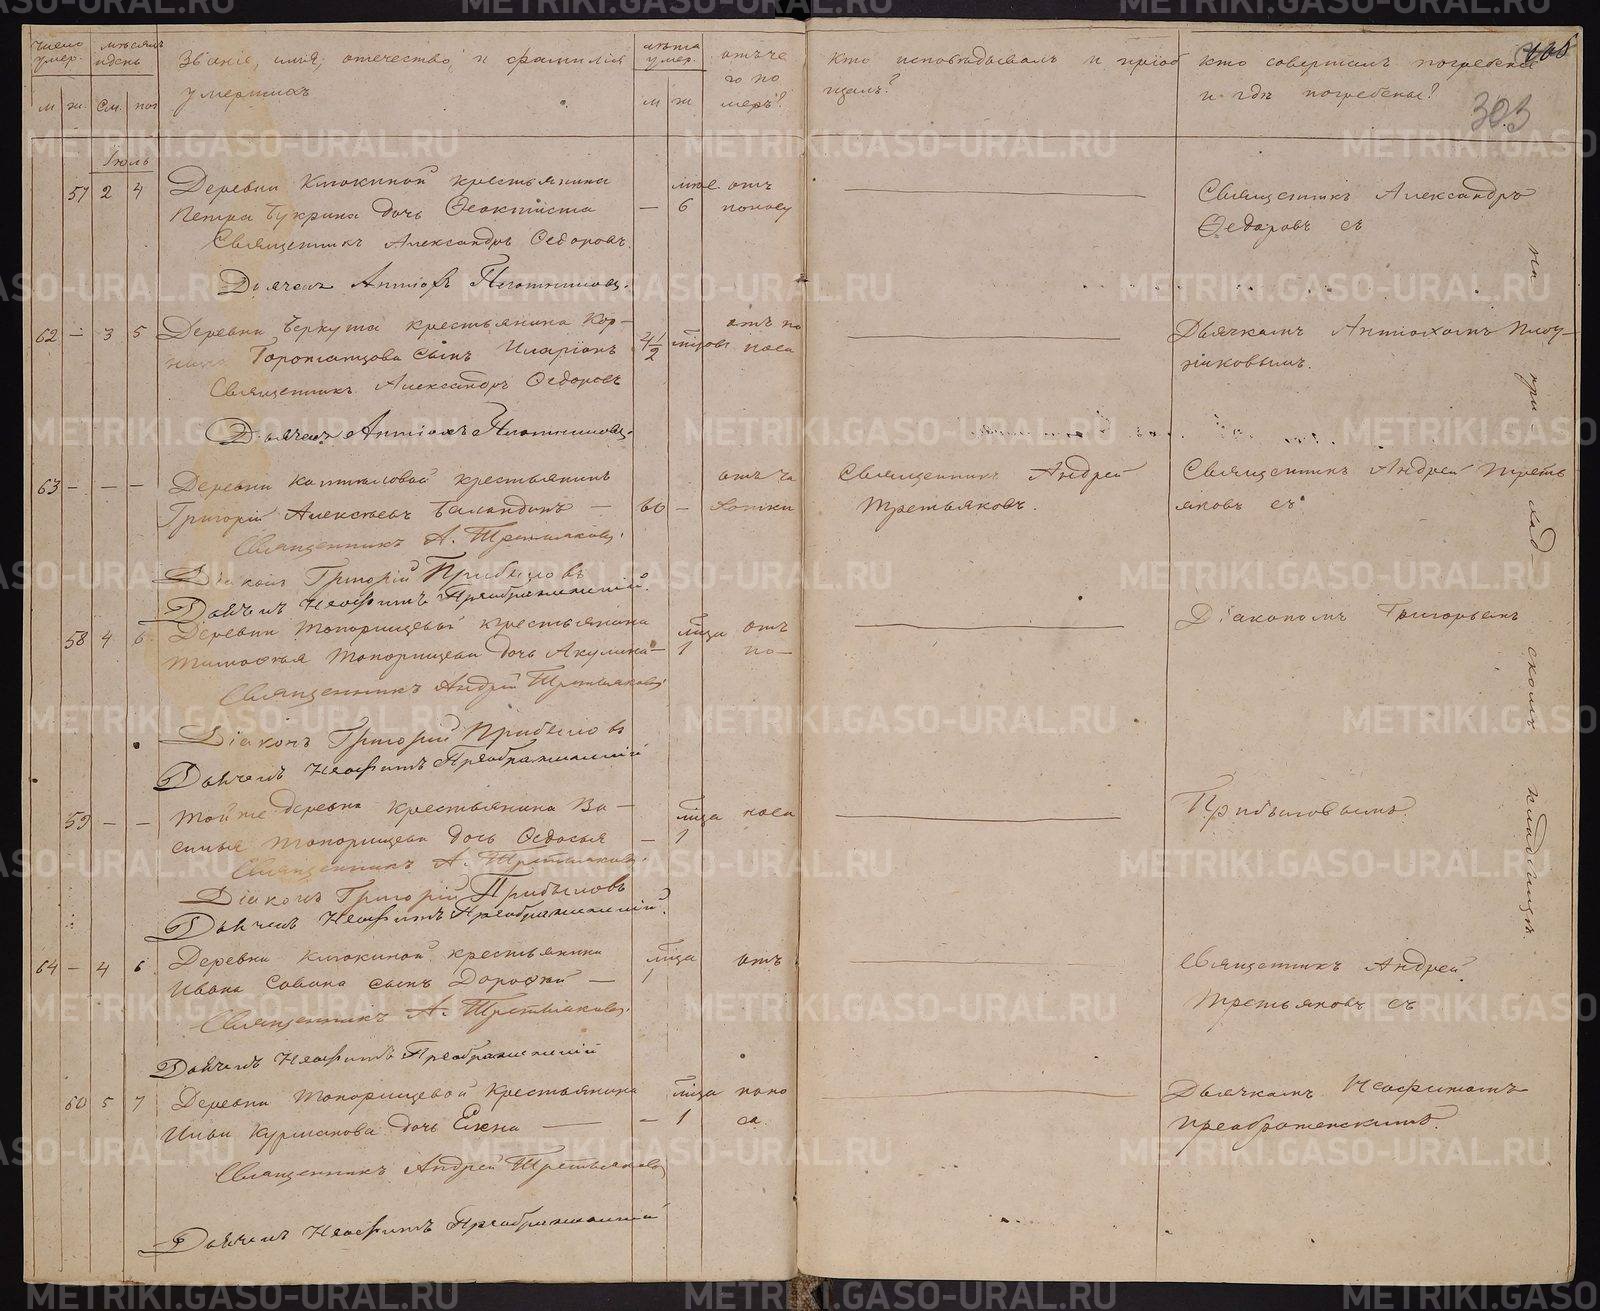 число умер. мѣсяцъ и день Званіе, имя, отечество, и фамилія лѣта умер. отъ чего по
умершихъ
м ж См. пог м ж меръ?
кто исповѣдывалъ и пріоб
щалъ?
кто совершалъ погребеніе
и гдѣ погребены?
303
Іюль
57 2 4 Деревни Клюкиной крестьянина отъ
Петра Букрина дочь Ѳеоктиста — 6 поносу
Священникъ Александръ Ѳедоровъ.
Дьячекъ Антіохъ Плотниковъ.
62 — 3 5 Деревни Беркута крестьянина Кор-
сынъ Иларіонъ 4½ поноса
Священникъ Александръ Ѳедоровъ
Дьячекъ Антіохъ Плотниковъ.
63 — — — Деревни крестьянинъ отъ ча
Григорій Алексѣевъ Баландинъ — 60 — хотки
Священникъ А. Третьяковъ.
Діаконъ Григорій Прибыловъ
Дьячекъ Неофитъ Преображенскій.
58 4 6 Деревни Топорищевой крестьянина отъ
Тимофея Топорищева дочь Акулина — 1 по—
Священникъ Андрей Третьяковъ
Діаконъ Григорій Прибыловъ
Дьячекъ Неофитъ Преображенскій
59 — — Той же деревни крестьянина Ва— носа
силья Топорищева дочь Ѳедосья — 1
Священникъ А. Третьяковъ.
Діаконъ Григорій Прибыловъ
Дьячекъ Неофитъ Преображенскій.
64 — 4 6 Деревни Клюкиной крестьянина отъ
Ивана Савина сынъ Дорофей — 1
Священникъ А. Третьяковъ.
Дьячекъ Неофитъ Преображенскій
60 5 7 Деревни Топорищевой крестьянина поно
Ильи Курмакова дочь Елена — — 1 са
Священникъ Андрей Третьяковъ
Дьячекъ Неофитъ Преображенскій
Священникъ Андрей
Третьяковъ.
Священникъ Александръ
Ѳедоровъ съ
Дьячкомъ Антіохомъ Плот-
никовымъ.
Священникъ Андрей Треть
яковъ съ
Діакономъ Григорьемъ
Прибыловымъ.
Священникъ Андрей
Третьяковъ съ
Дьячкомъ Неофитомъ
Преображенскимъ.
на при- ход скомъ кладбищѣ.
METRIKI.GASO-URAL.RU